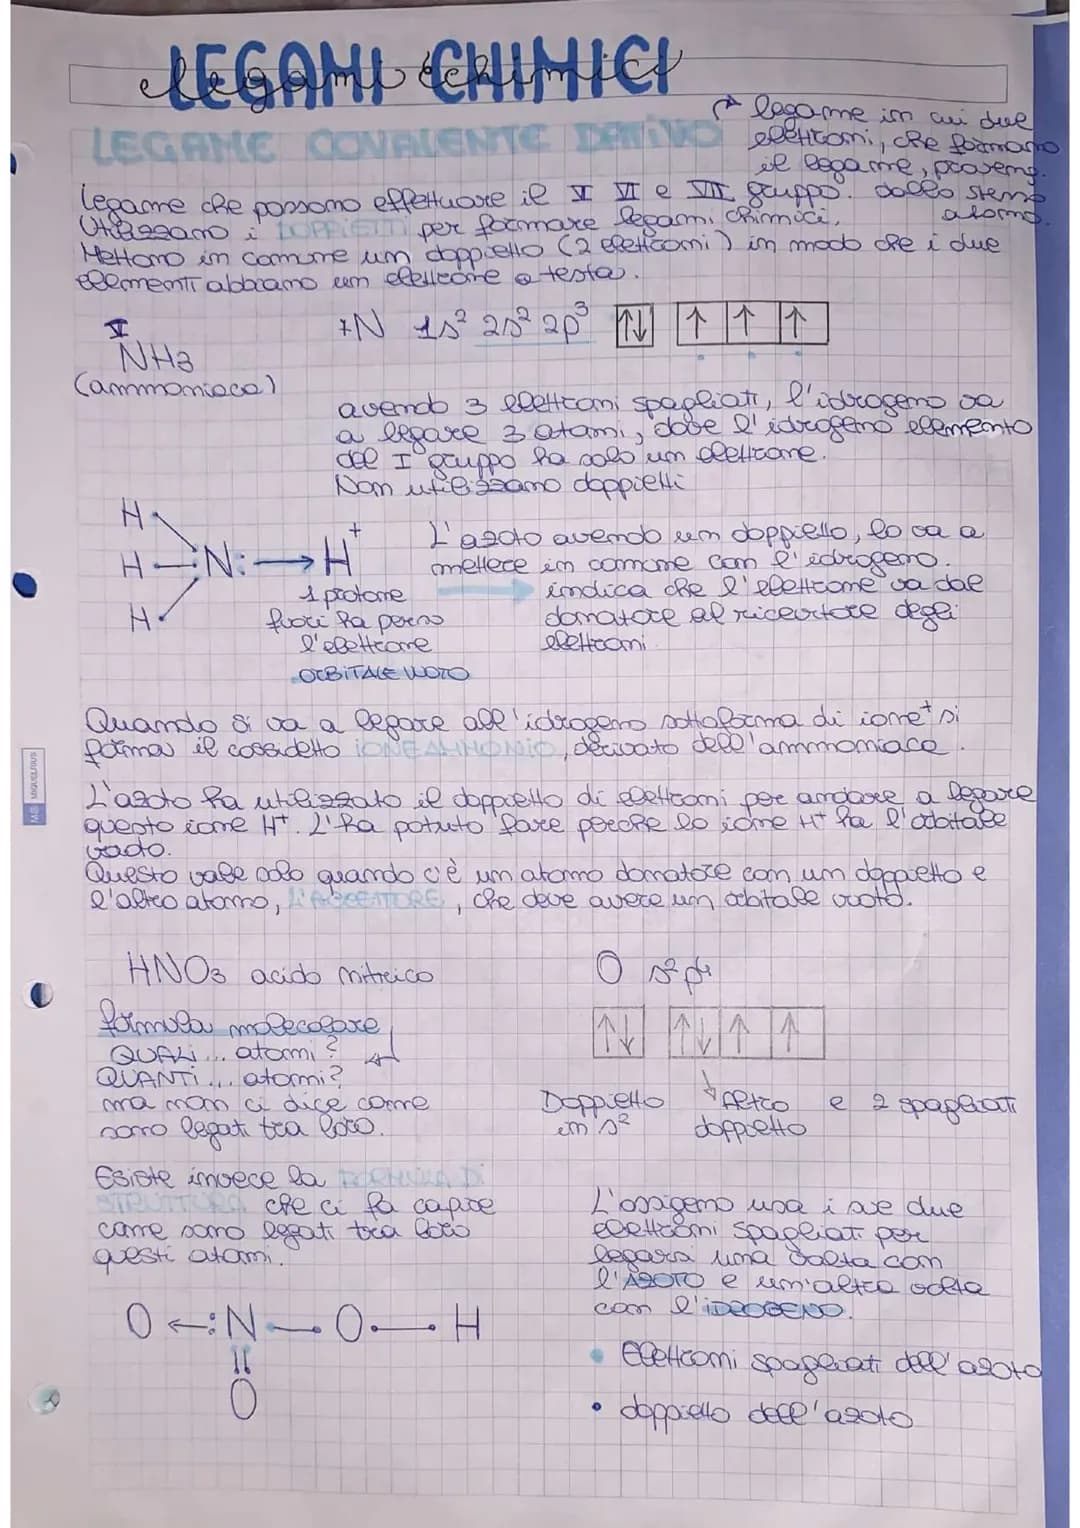 LEGAMI CHIMICI
legami chimici
LEGAME COVALENTE DATIVO
legame in cui due
elettroni, che formano
il legame, proveng.
dallo stesso
atomo.
Legame che possono effettuare il V VI e VII gruppo.
Utilizzano i DOPPIETTI per formare legami chimici.
Mettono in comune un doppietto (2 elettroni) in modo che i due
elementi abbiano un elettrone a testa.
V
NH3
(ammoniaca)
7N 1s² 2s² 2p³ ↑↓ ↑ ↑ ↑
avendo 3 elettroni spagliati, l'idrogeno va
a legare 3 atomi, dove l'idrogeno elemento
del I gruppo ha solo un elettrone.
Non utilizzamo doppietti
H
H — N: → H⁺
H
1 protone
fuori ha perso
l'elettrone
ORBITALE VUOTO
L'azoto avendo un doppietto, lo va a
mettere in comune con l'idrogeno.
→ indica che l'elettrone va dal
donatore al ricevitore degli
elettroni
Quando si va a legare all'idrogeno sottoforma di ione⁺ si
forma il cosidetto IONE AMMONIO, derivato dell'ammoniaca.
L'azoto ha utilizzato il doppietto di elettroni per andare a legare
questo ione H⁺. L'ha potuto fare perche lo ione H⁺ ha l'orbitale
vuoto.
Questo vale solo quando c'è un atomo donatore con un doppietto e
l'altro atomo, L'ACCETTORE, che deve avere un orbitale vuoto.
HNO3 acido nitrico
formula molecolare
QUALI... atomi?
QUANTI... atomi?
ma non ci dice come
sono legati tra loro.
O s² p⁴
↑↓ ↑↓ ↑ ↑
Doppietto in s² ↓ Altro doppietto e 2 spagliati
Esiste invece la FORMULA DI
STRUTTURA che ci fa capire
come sono legati tra loro
questi atomi.
O ← :N — O — H
||
O
L'ossigeno usa i sue due
elettroni spagliati per
legarsi una volta con
l'AZOTO e un'altra volta
con l'IDROGENO.
• Elettroni spagliati dell'azoto
• doppietto dell'azoto
MIQUELRIUS